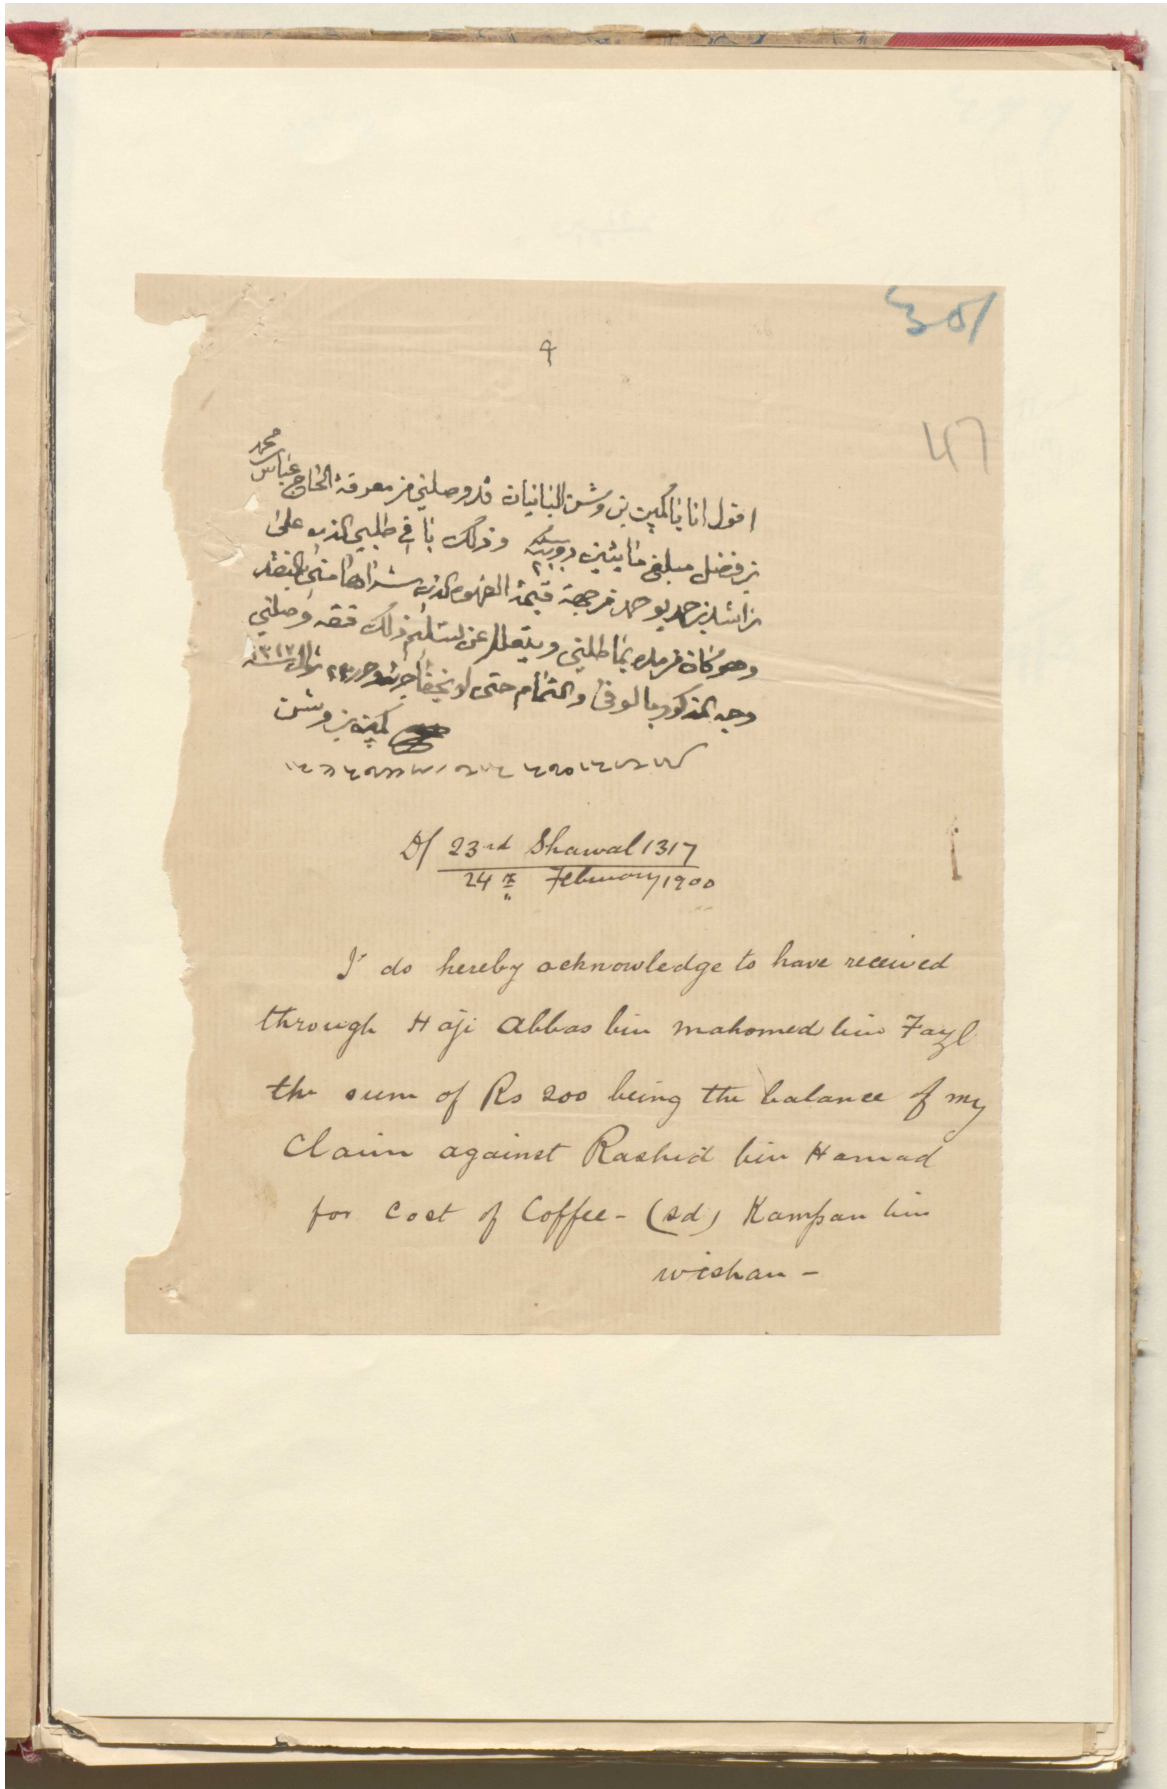 351
47
محمد
اقول انا يا كمبن بن وشن البانيان قد وصلني من معرفة الحاج عباس
بن فضل مبلغ مايتين روبيه ٢٠٠ وذلك باقي طلبي الذي على
راشد بن حمد بو حمد من جهة قيمة القهوه الذي شراها مني بالنقد
وهو كان يماطلني ويتعلل عن تسليم ذلك فقد وصلني
وجه المذكور بالوفى والتمام حتى لا يخفا جرى وحرر ٢٣ شوال سنة ١٣١٧
كمبن بن وشن
D/ 23rd Shawal 1317
24th February 1900
I do hereby acknowledge to have received
through Haji Abbas bin Mahomed bin Fazl
the sum of Rs 200 being the balance of my
Claim against Rashid bin Hamad
for Cost of Coffee - (sd) Kampan bin
wishan -